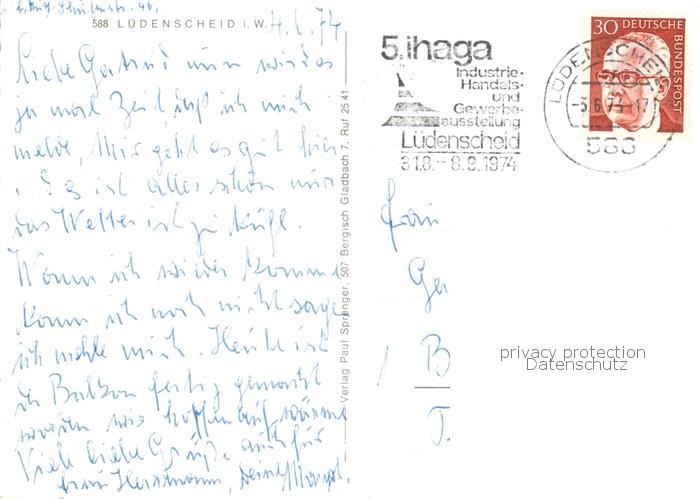 588 LÜDENSCHEID i. W. 4.6.74
Liebe Gertrud nun wird es
ja mal Zeit, daß ich mich
melde, Mir geht es gut hier
. Es ist alles schön nur
das Wetter ist zu kühl.
Wann ich wieder komme
kann ich noch nicht sagen
ich melde mich. Heute ist
der Balkon fertig gemacht
worden wir hoffen auf wärme
Viele liebe Grüße auch für
Herrmann, deine
Verlag Paul Sprenger, 507 Bergisch Gladbach 7, Ruf 25 41
5. ihaga
Industrie-
Handels-
und
Gewerbe-
ausstellung
Lüdenscheid
31.8. - 8.9.1974
LÜDENSCHEID
-5.6.74-17
588
30 DEUTSCHE
BUNDESPOST
Frau
Ger
B
T.
privacy protection
Datenschutz